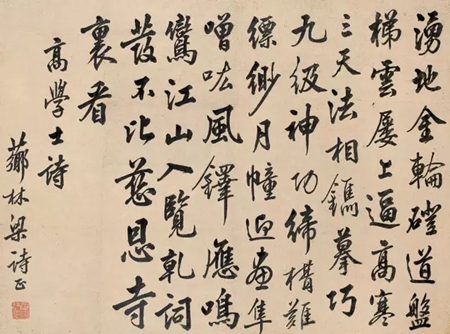 湧地金輪磴道盤
梯雲屢上逼高寒
三天法相鐫摹巧
九級神功締構難
縹緲月幢迎畫隼
噌吰風鐸應鳴
鸞江山入覽詞
發不比慈恩寺
裏看
高學士詩
薌林梁詩正